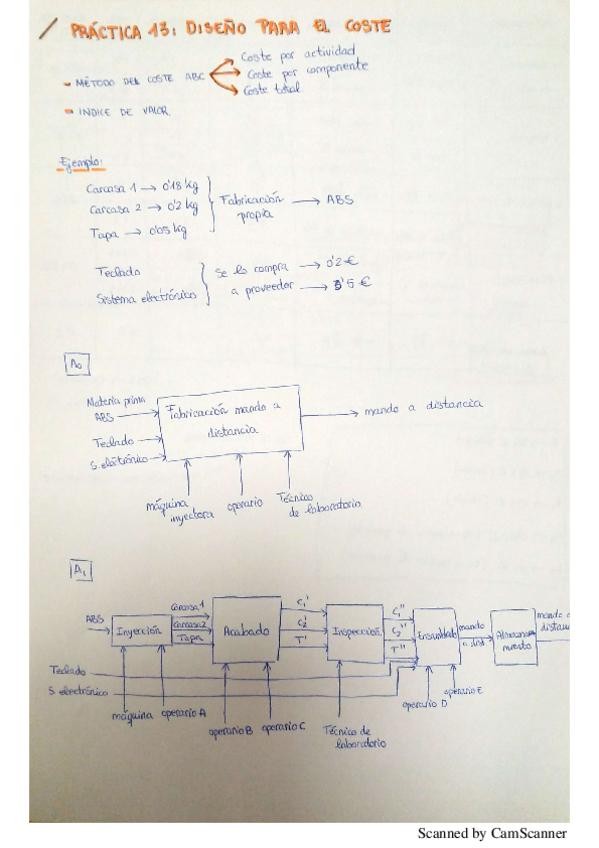 PRÁCTICA 13: DISEÑO PARA EL COSTE
- MÉTODO DEL COSTE ABC
Coste por actividad
Coste por componente
Coste total
- INDICE DE VALOR.
Ejemplo:
Carcasa 1 → 0'18 kg
Carcasa 2 → 0'2 kg
Tapa → 0'05 kg
Fabricación propia → ABS
Teclado
Sistema electrónico
Se lo compra a proveedor
→ 0'2 €
→ 3'5 €
A0
Materia prima
ABS
Teclado
S. electrónico
Fabricación mando a
distancia
mando a distancia
máquina
inyectora
operario
Técnico
de laboratorio
A1
ABS
Inyección
Carcasa 1
Carcasa 2
Tapa
Acabado
C1'
C2'
T'
Inspección
C1''
C2''
T''
Ensamblado
mando
a dist.
Almacena
miento
mando a
distan
Teclado
S electrónico
máquina
operario A
operario B
operario C
Técnico de
laboratorio
operario D
operario E
Scanned by CamScanner